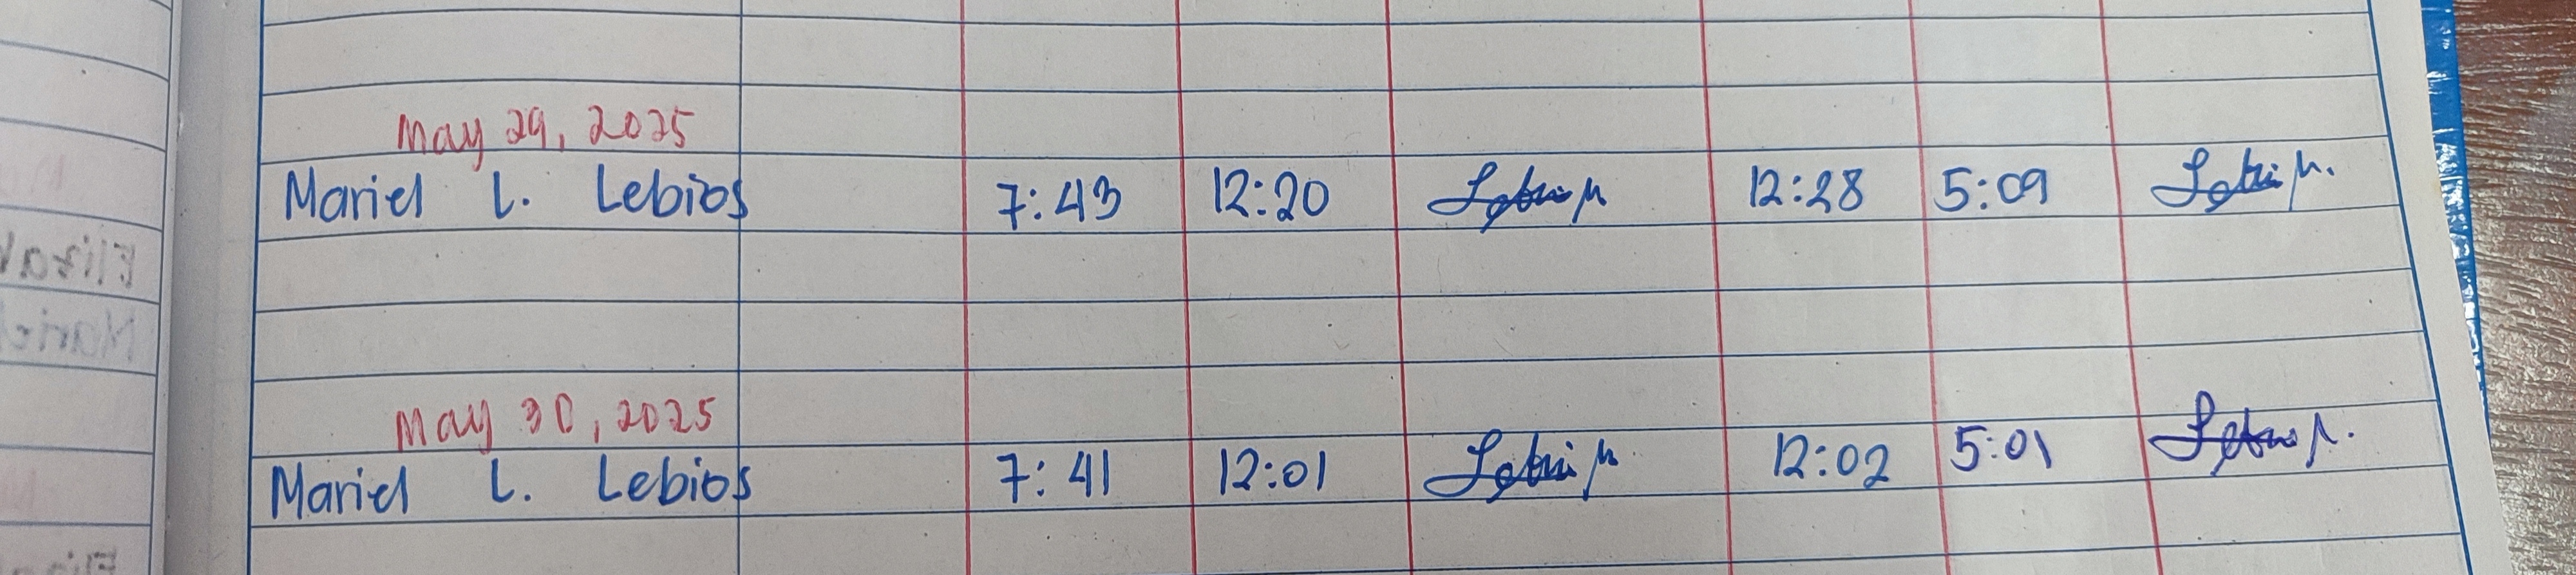 May 29, 2025
Mariel L. Lebios 7:43 12:20 12:28 5:09
May 30, 2025
Mariel L. Lebios 7:41 12:01 12:02 5:01